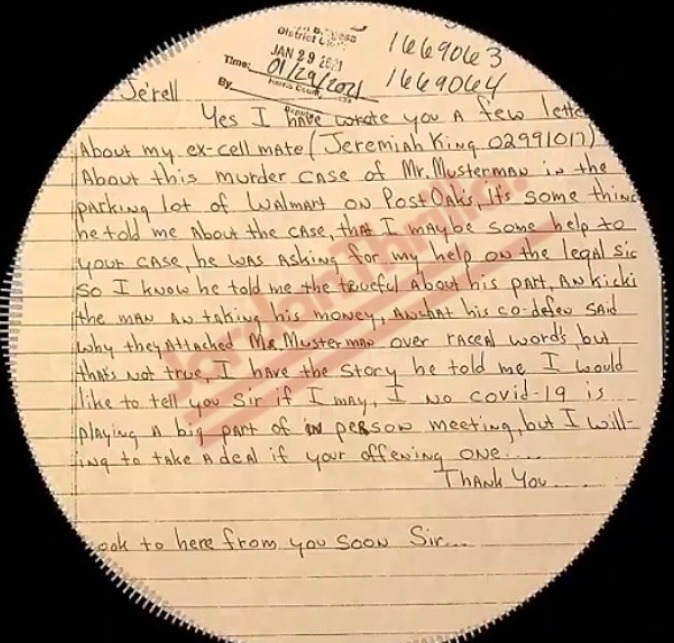 District Cl
JAN 29 2021
Time: 01/29/2021
Harris County,
By
Deputy
1669063
1669064
Je'rell
Yes I have wrote you A few lette
About my ex-cell mate (Jeremiah King 02991017)
About this murder case of Mr. Musterman in the
parking lot of Walmart on Post Oaks, It's some thing
he told me About the case, that I maybe some help to
your case, he was Asking for my help on the legal sic
so I know he told me the trueful About his part, AN kicki
the man AN taking his money, AN what his co-defen said
why they Attacked Mr. Musterman over raceal word's, but
that's Not true, I have the story he told me I would
like to tell you Sir if I may, I no covid-19 is
playing A big part of in person meeting, but I will-
ing to take A deal if your offering one....
Thank You.....
ook to here from you soon Sir...
JordanThrilla.